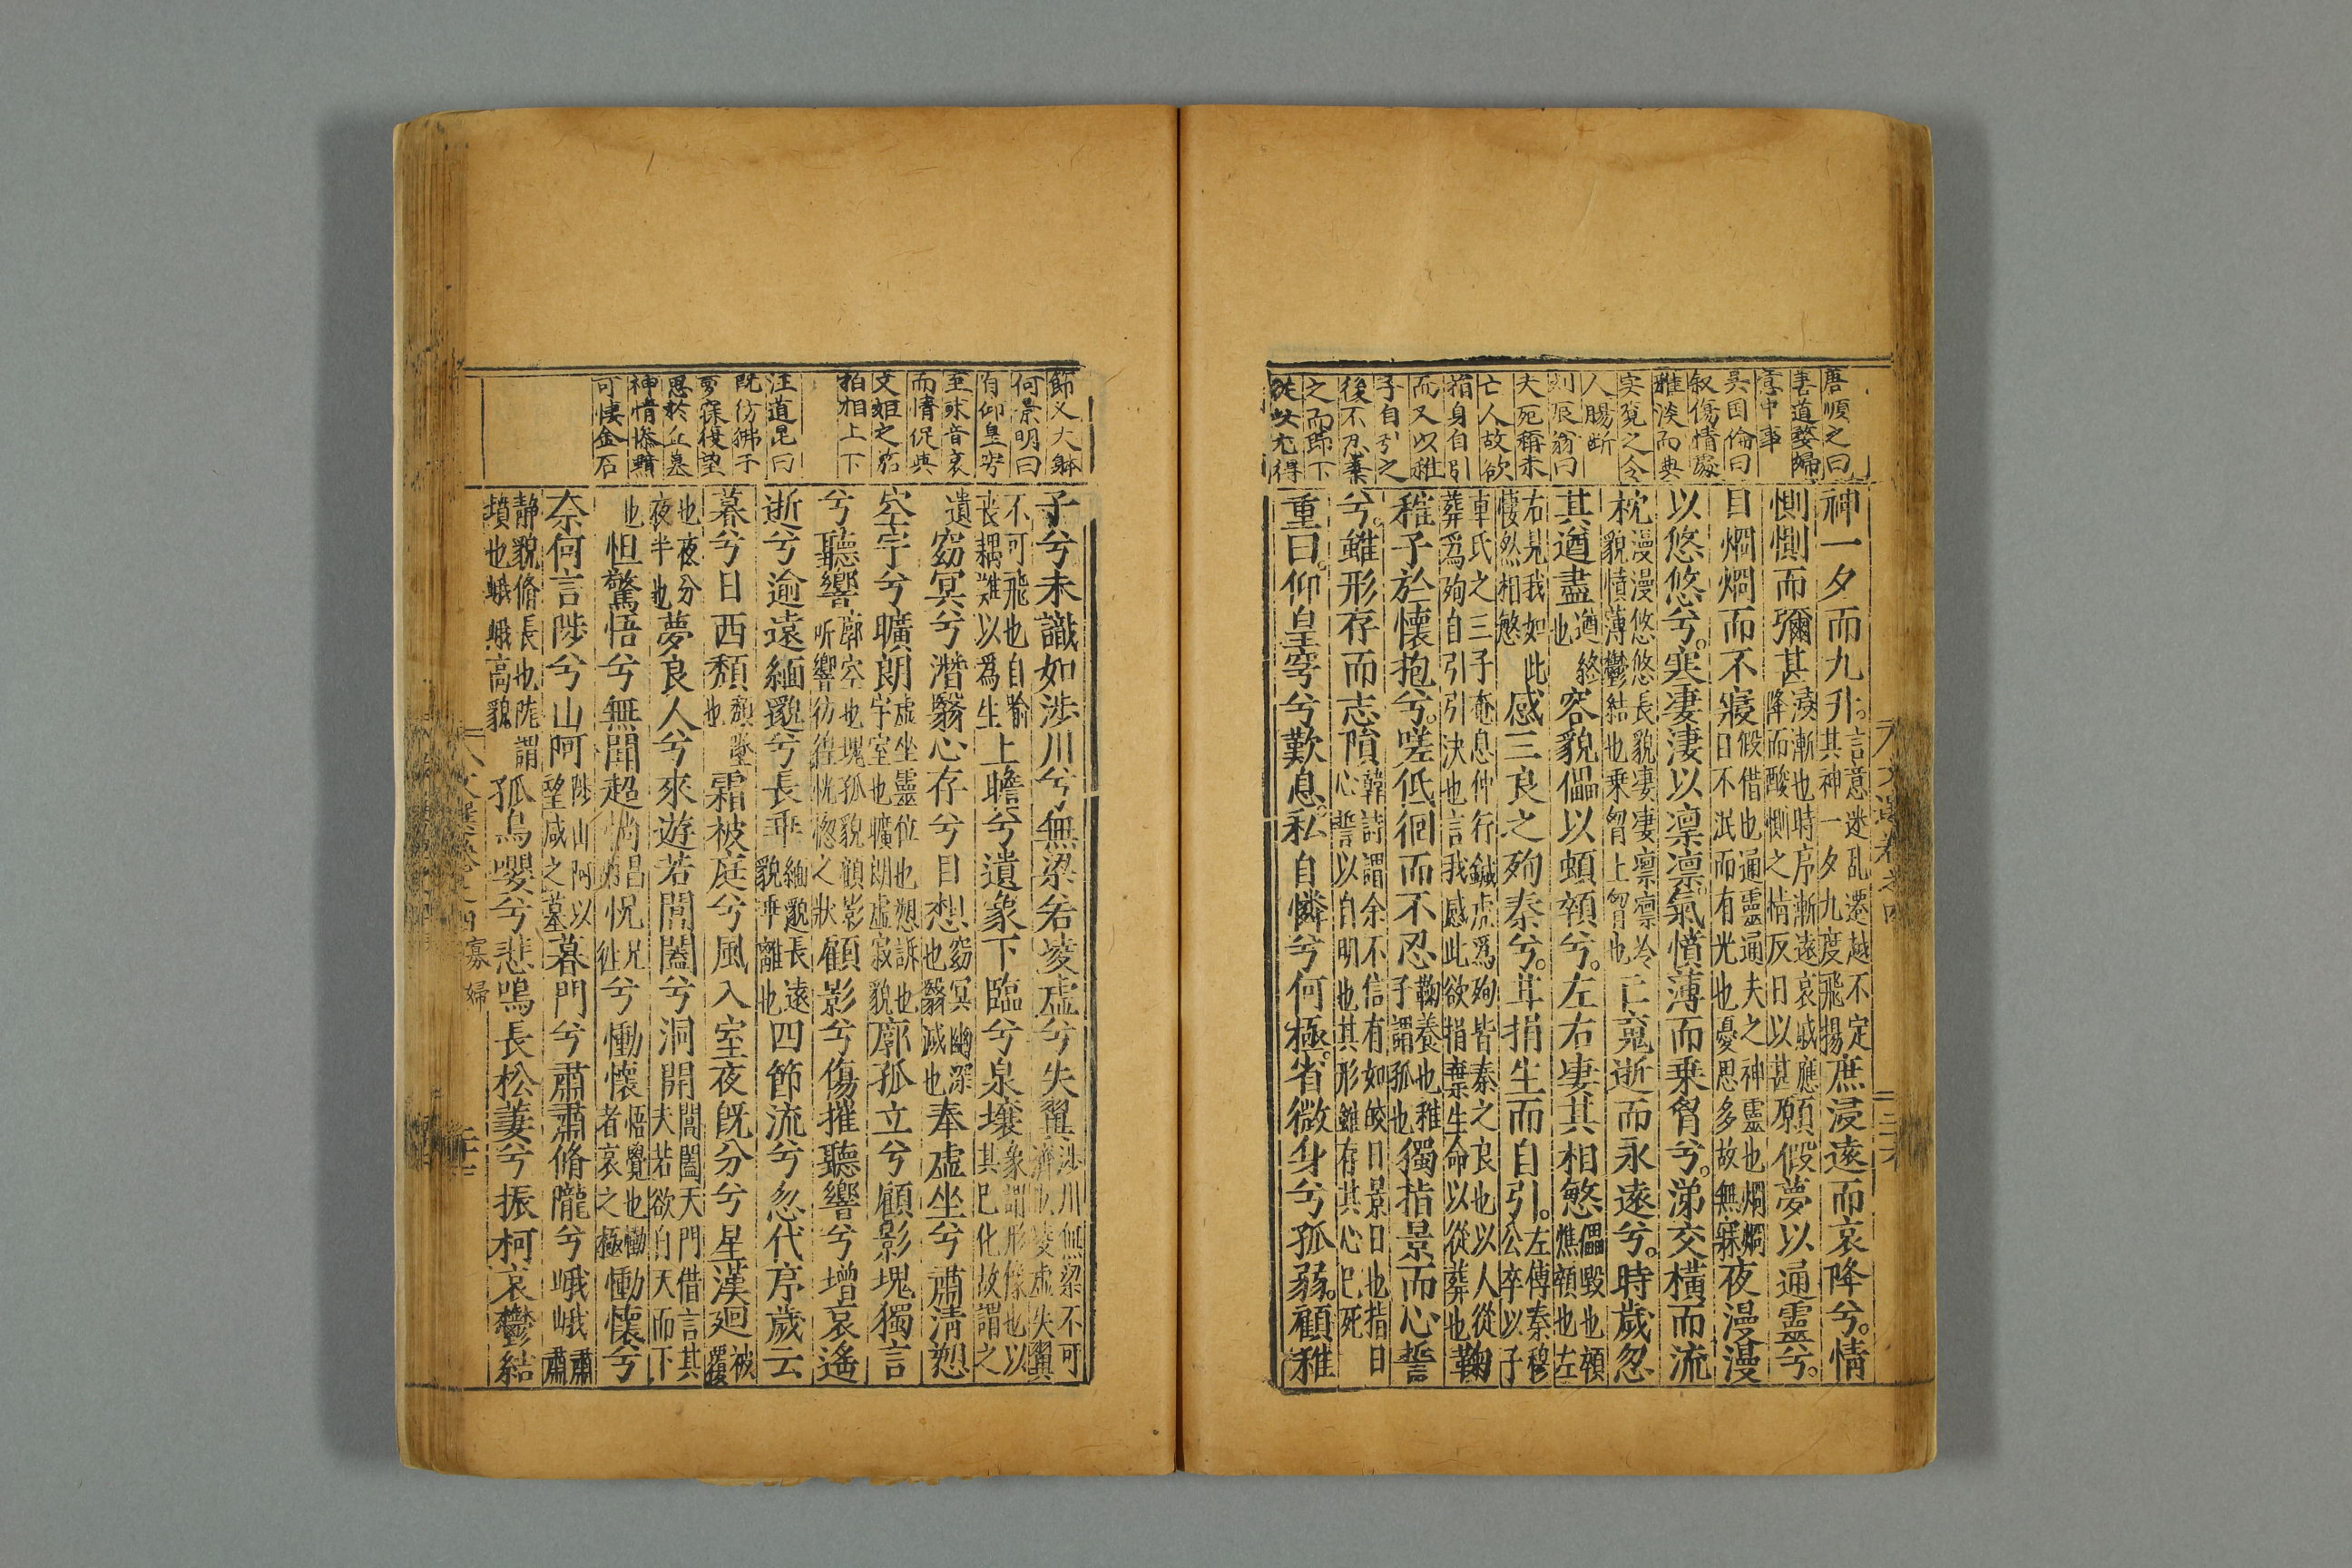 唐順之曰
善道嫠婦
意中事
吳国倫曰
叙傷情處
雖淡而典
实覽之令
人腸断
刘辰翁曰
大死稱未
亡人故欲
捐身自引
而又以稚
子自兮之
後不忍棄
之而歸下
從此尤得
神一夕而九升。言意迷乱遷越不定其神一夕九度飛揚庶浸遠而哀降兮。情
惻惻而彌甚湊漸也時序漸遠哀戚應降而酸惻之情反日以甚願假夢以通靈兮。
目烱烱而不寢假借也通靈通夫之神靈也烱烱日不泯而有光也憂思多故無寐夜漫漫
以悠悠兮。寒凄淒以凛凛。氣憤薄而乗胷兮。涕交橫而流
枕漫漫悠悠長貌凄凄凛凛冷貌憤薄鬱結也乗胷上胷也亡䰟逝而永遠兮。時歲忽
其遒盡遒終也容貌儡以頓顇兮。左右凄其相慜儡毀也頓憔顇也左
右見我如此悽然相慜感三良之殉秦兮。甘捐生而自引。左傳秦穆公卒以子
車氏之三子奄息仲行鍼虎爲殉皆秦之良也以人從葬爲殉自引引决也言我感此欲捐棄生命以從葬也鞠
稚子於懷抱兮。嗟低徊而不忍鞠養也稚子謂孤也獨指景而心誓
兮。雖形存而志隕韓詩謂余不信有如皎日景日也指日心誓以自明也其形雖存其心已死
重曰。仰皇穹兮歎息。私自憐兮何極。省微身兮孤弱。顧稚
節义大躰
何景明曰
自仰皇穹
至末音哀
而情促典
文姬之笳
拍相上下
汪道昆曰
既彷彿于
夢寐復望
思於丘墓
神情慘黯
可悽金石
子兮未識如涉川兮無梁若凌虛兮失翼涉川無梁不可濟也凌虛失翼
不可飛也自喻丧耦難以爲生上瞻兮遺象下臨兮泉壤象謂形像也以其已化故謂之
遺窈冥兮潛翳心存兮目想窈冥幽深也翳滅也奉虛坐兮肅淸愬
空宇兮曠朗虛坐靈位也愬訴也宇室也曠朗虛寂貌廓孤立兮顧影塊獨言
兮聽響廓空也塊孤貌顧影听響彷徨恍惚之狀顧影兮傷摧聽響兮增哀遙
逝兮逾遠緬邈兮長乖緬邈長遠貌乖離也四節流兮忽代序歲云
暮兮日西頽頽墜也霜被庭兮風入室夜旣分兮星漢廻被覆
也夜分夜半也夢良人兮來遊若閶闔兮洞開閶闔天門借言其夫若欲自天而下
也怛驚悟兮無聞超惝怳兮慟懷悟覺也慟者哀之極慟懷兮
奈何言陟兮山阿陟山阿以望咸之墓墓門兮肅肅脩隴兮峨峨肅肅
静貌脩長也隴謂墳也峨峨高貌孤鳥嚶兮悲鳴長松萋兮振柯哀鬱結
寡婦